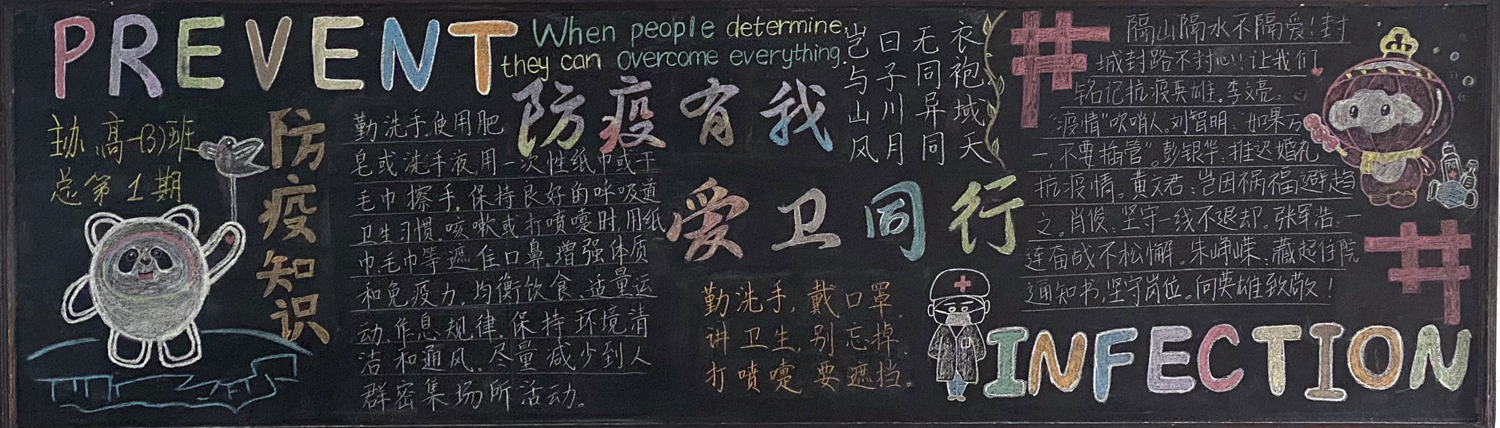 PREVENT
When people determine,
they can overcome everything.
防疫有我
爱卫同行
主办:高一(3)班
总第1期
防疫知识
勤洗手,使用肥
皂或洗手液,用一次性纸巾或干
毛巾擦手,保持良好的呼吸道
卫生习惯,咳嗽或打喷嚏时,用纸
巾、毛巾等遮住口鼻,增强体质
和免疫力,均衡饮食、适量运
动、作息规律,保持环境清
洁和通风、尽量减少到人
群密集场所活动。
岂曰无衣
与子同袍
山川异域
风月同天
勤洗手,戴口罩,
讲卫生,别忘掉,
打喷嚏要遮挡。
#
隔山隔水不隔爱!封
城封路不封心!让我们
铭记抗疫英雄。李文亮:
"疫情"吹哨人。刘智明:"如果万
一,不要插管"。彭银华:推迟婚礼
抗疫情。黄文君:岂因祸福避趋
之。肖俊:坚守一线不退却。张军浩:一
连奋战不松懈。朱峥嵘:藏起住院
通知书,坚守岗位。向英雄致敬!
#
INFECTION